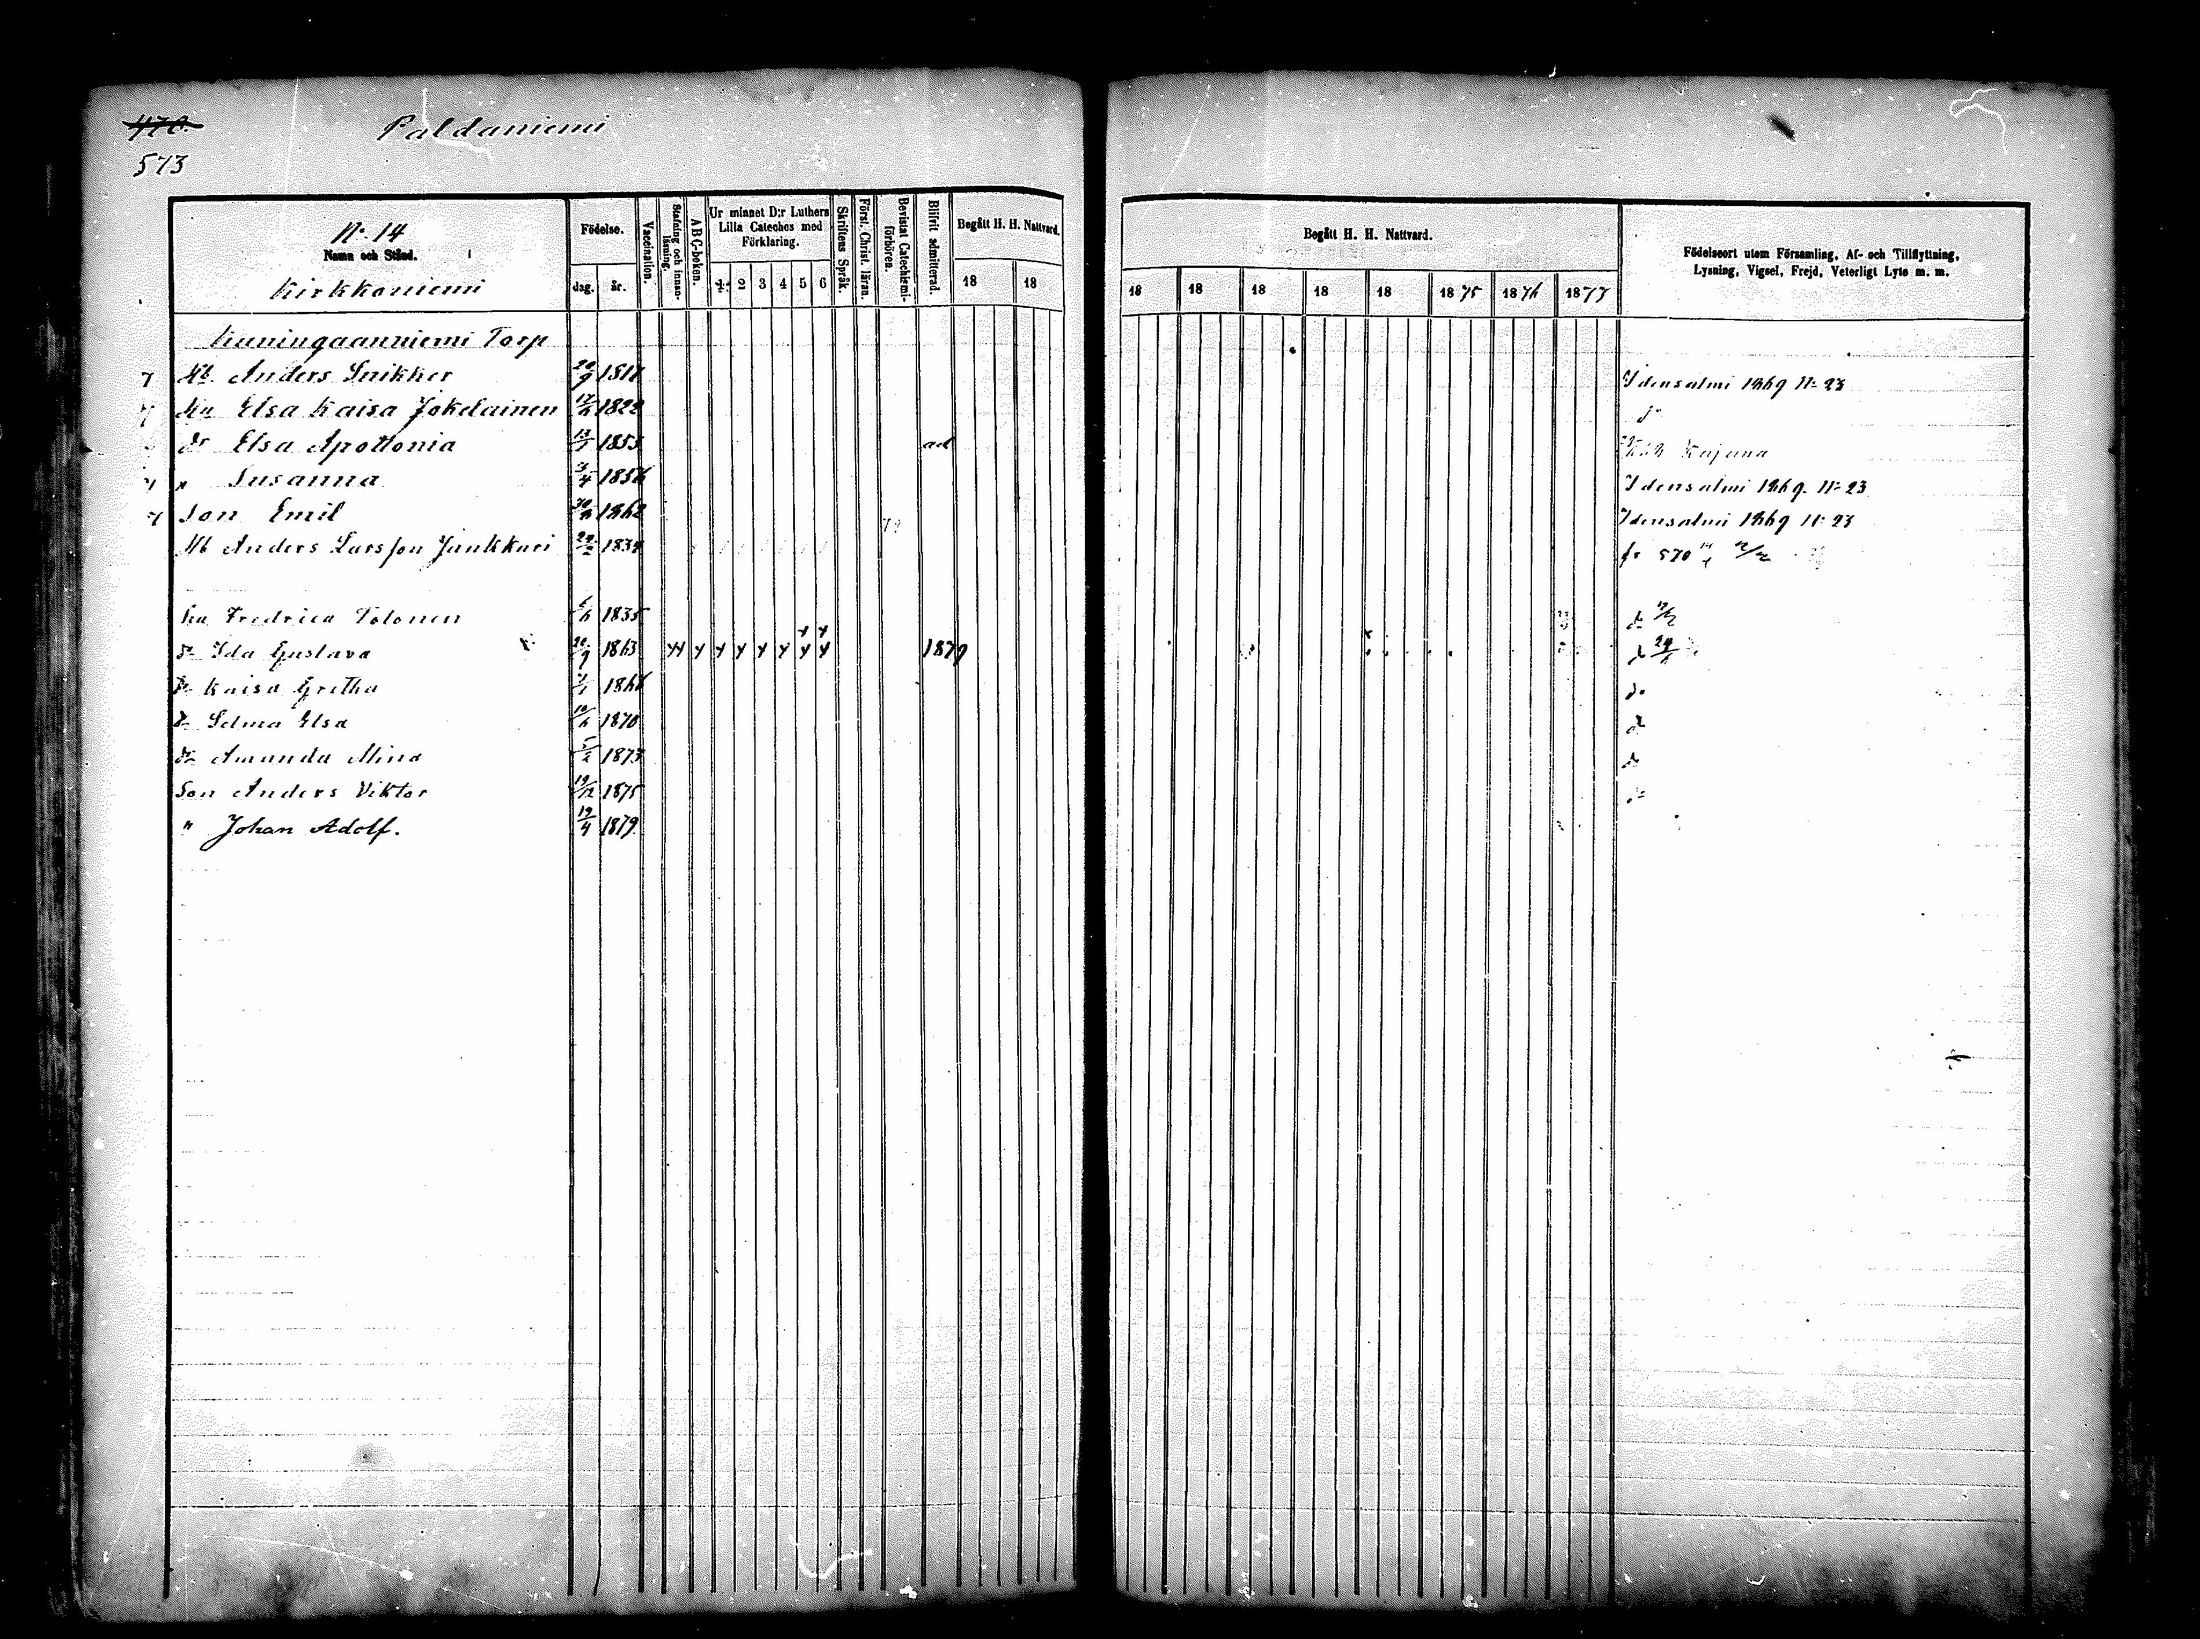 470.
573
Paldaniemi
No 14
Namn och Stånd.
Kirkkoniemi
Födelse.
dag. år.
Vaccination.
Stafning och innanläsning.
A B C-boken.
Ur minnet D:r Luthers Lilla Cateches med Förklaring.
1 2 3 4 5 6
Skriftens Språk.
Först. Christ. läran.
Bevistat Catechismiförhören.
Blifvit admitterad.
Begått H. H. Nattvard.
18 18
Begått H. H. Nattvard.
18 18 18 18 18 1875 1876 1877
Födelseort utom Församling, Af- och Tillflyttning, Lysning, Vigsel, Frejd, Veterligt Lyte m. m.
Kuningaanniemi Torp
Mb. Anders Snikker 9 Idensalmi 1869 No 23
hu Elsa Kaisa Jokelainen 1822 do
dr Elsa Apollonia 1855 ad Kajana
" Susanna 1856 Idensalmi 1869. No 23
Son Emil 1862 Idensalmi 1869 No 23
Mb Anders Larsson Junkkari 1834 fr 570
hu Fredrica Tolonen 1835 do
dr Ida Gustava 9 1863 1879 do
dr Kaisa Gretha 1866 do
dr Selma Elsa 1870 do
dr Amanda Mina 1873 do
Son Anders Viktor 19/12 1875 do
" Johan Adolf. 19/4 1879.